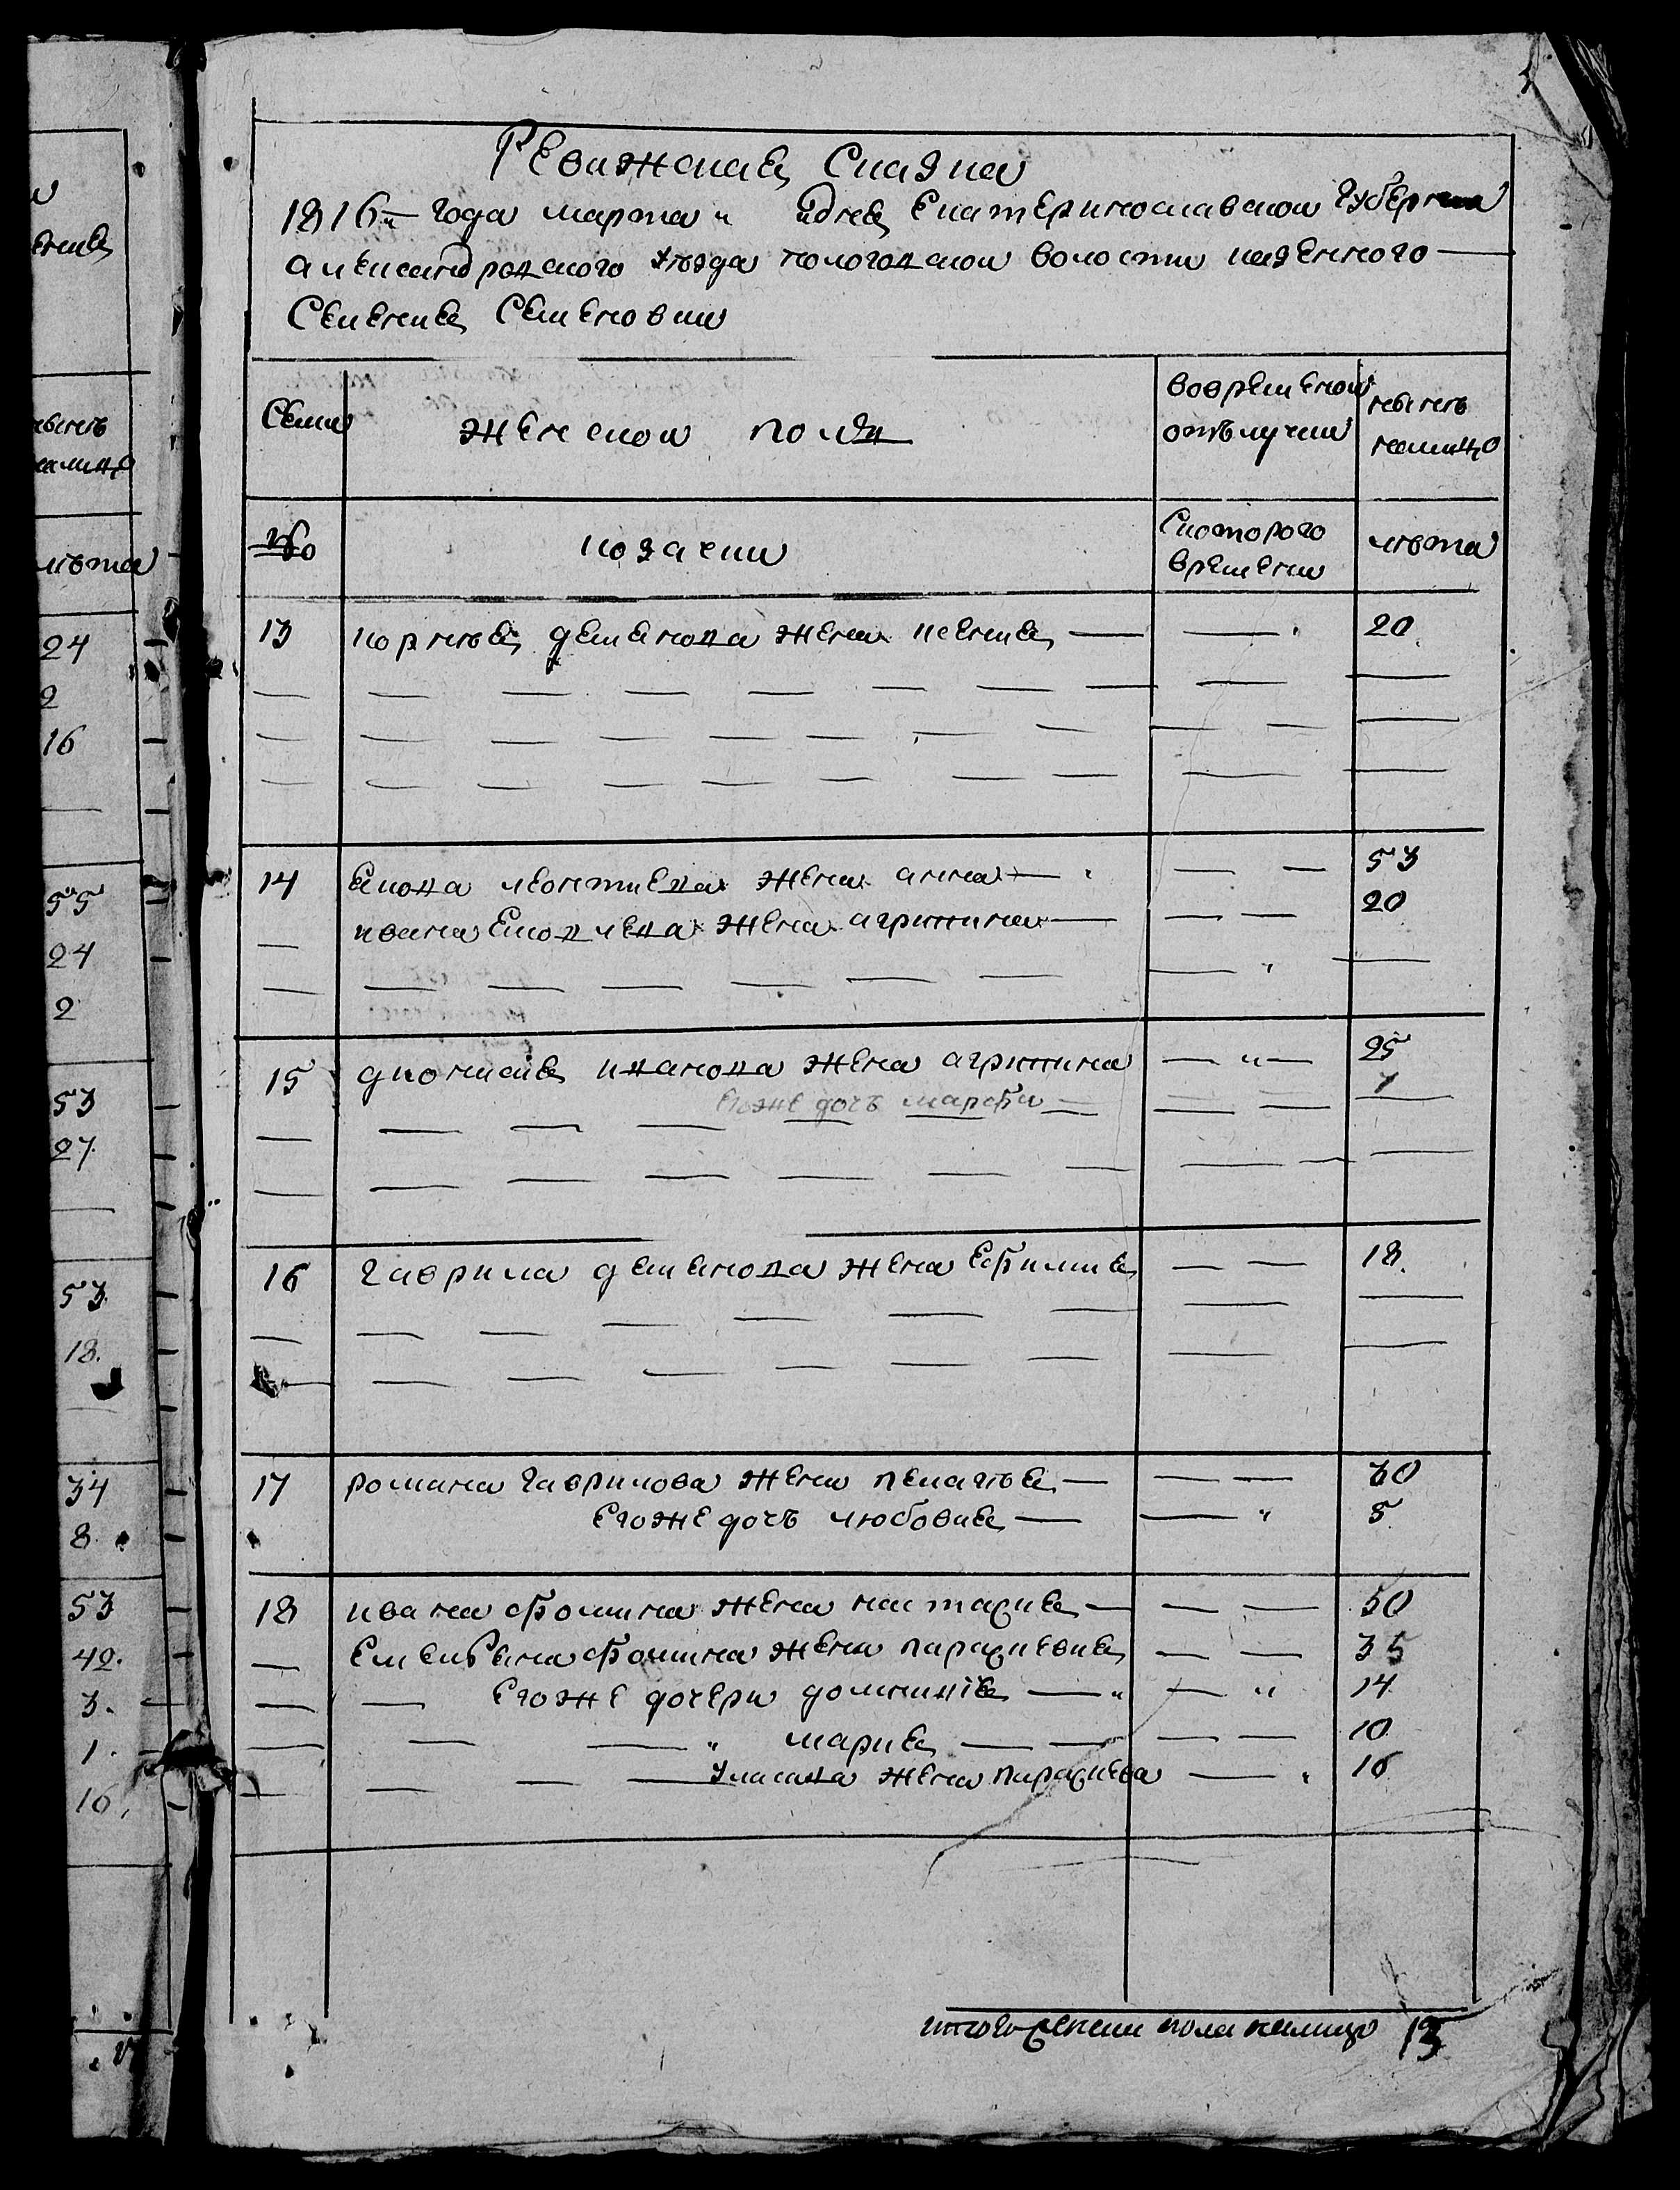 Ревижская Сказка
1816г года марта " дня Екатеринославской Губернии
александровского уезда пологовской волости казенного
Селения Семеновки
Семьи
женской пол
вовременной отълучки
ныне налицо
№
козачки
Скоторого времени
лета
13 корнея демянова жена ксения — — 20
14 якова леонтиева жена анна — — 53
ивана яковлева жена агрипина — — 20
15 дионисия иванова жена агрипина — " — 25
егоже дочь марфа — — 7
16 гаврила демянова жена ефимия — — 18.
17 романа гаврилова жена пелагея — — 30
егоже дочь любовия — " 8
18 ивана фомина жена настасия — — 50
емельяна фомина жена парасковия — — 35
— егоже дочери домникия — " — " 14
— — " мария — — — 10
— — власа жена параскева — 16
итого женска пола налицо 13
нынъ
налицо
лѣта
24
2
16
55
24
2
53
27.
53
18.
34
8.
53
42.
3.
1.
16.